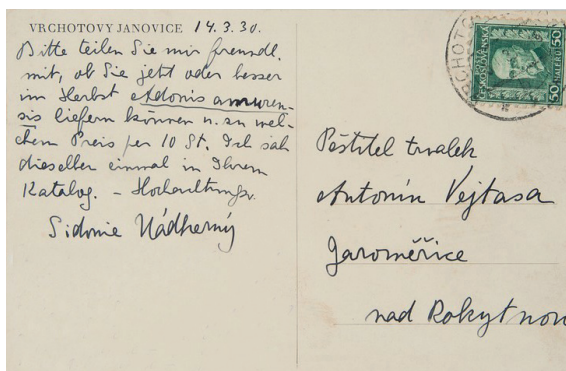 VRCHOTOVÝ JANOVICE 14.3.30.
Bitte teilen Sie mir freundl.
mit, ob Sie jetzt oder besser
im Herbst Adonis amuren-
sis liefern können u. zu wel-
chem Preis per 10 St. Ich sah
dieselben einmal in Ihrem
Katalog. – Hochachtungsv.
Sidonie Nádherný
ČESKOSLOVENSKÁ
50 HALÉŘŮ 50
Pěstitel trvalek
Antonín Vejtasa
Jaroměřice
nad Rokytnou